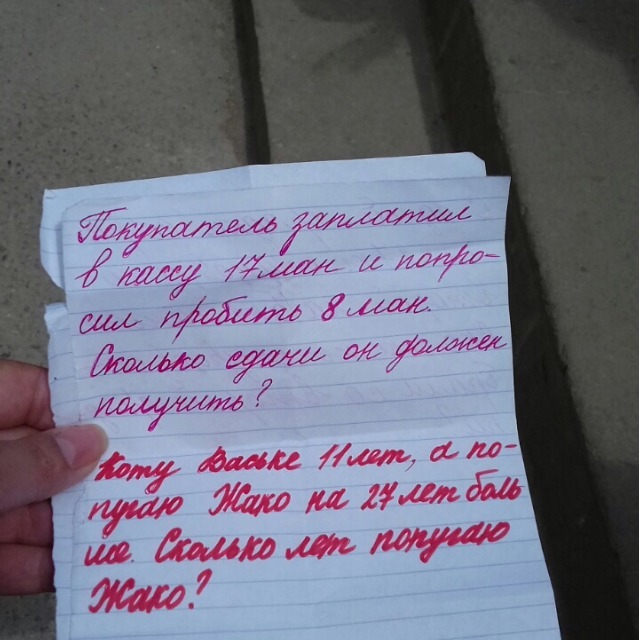 Покупатель заплатил
в кассу 17 ман и попро-
сил пробить 8 ман.
Сколько сдачи он должен
получить?
Коту Ваське 11 лет, а по-
пугаю Жако на 27 лет боль
ше. Сколько лет попугаю
Жако?